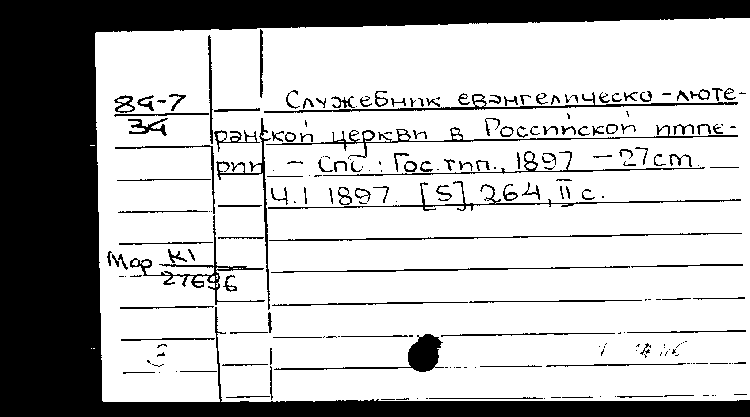 89-7 Служебник евангелическо-люте-
34 ранской церкви в Российской импе-
рии. - Спб.: Гос. тип., 1897 - 27cm
Ч.I 1897. [5], 264, II с.
Мор К1
27696
3